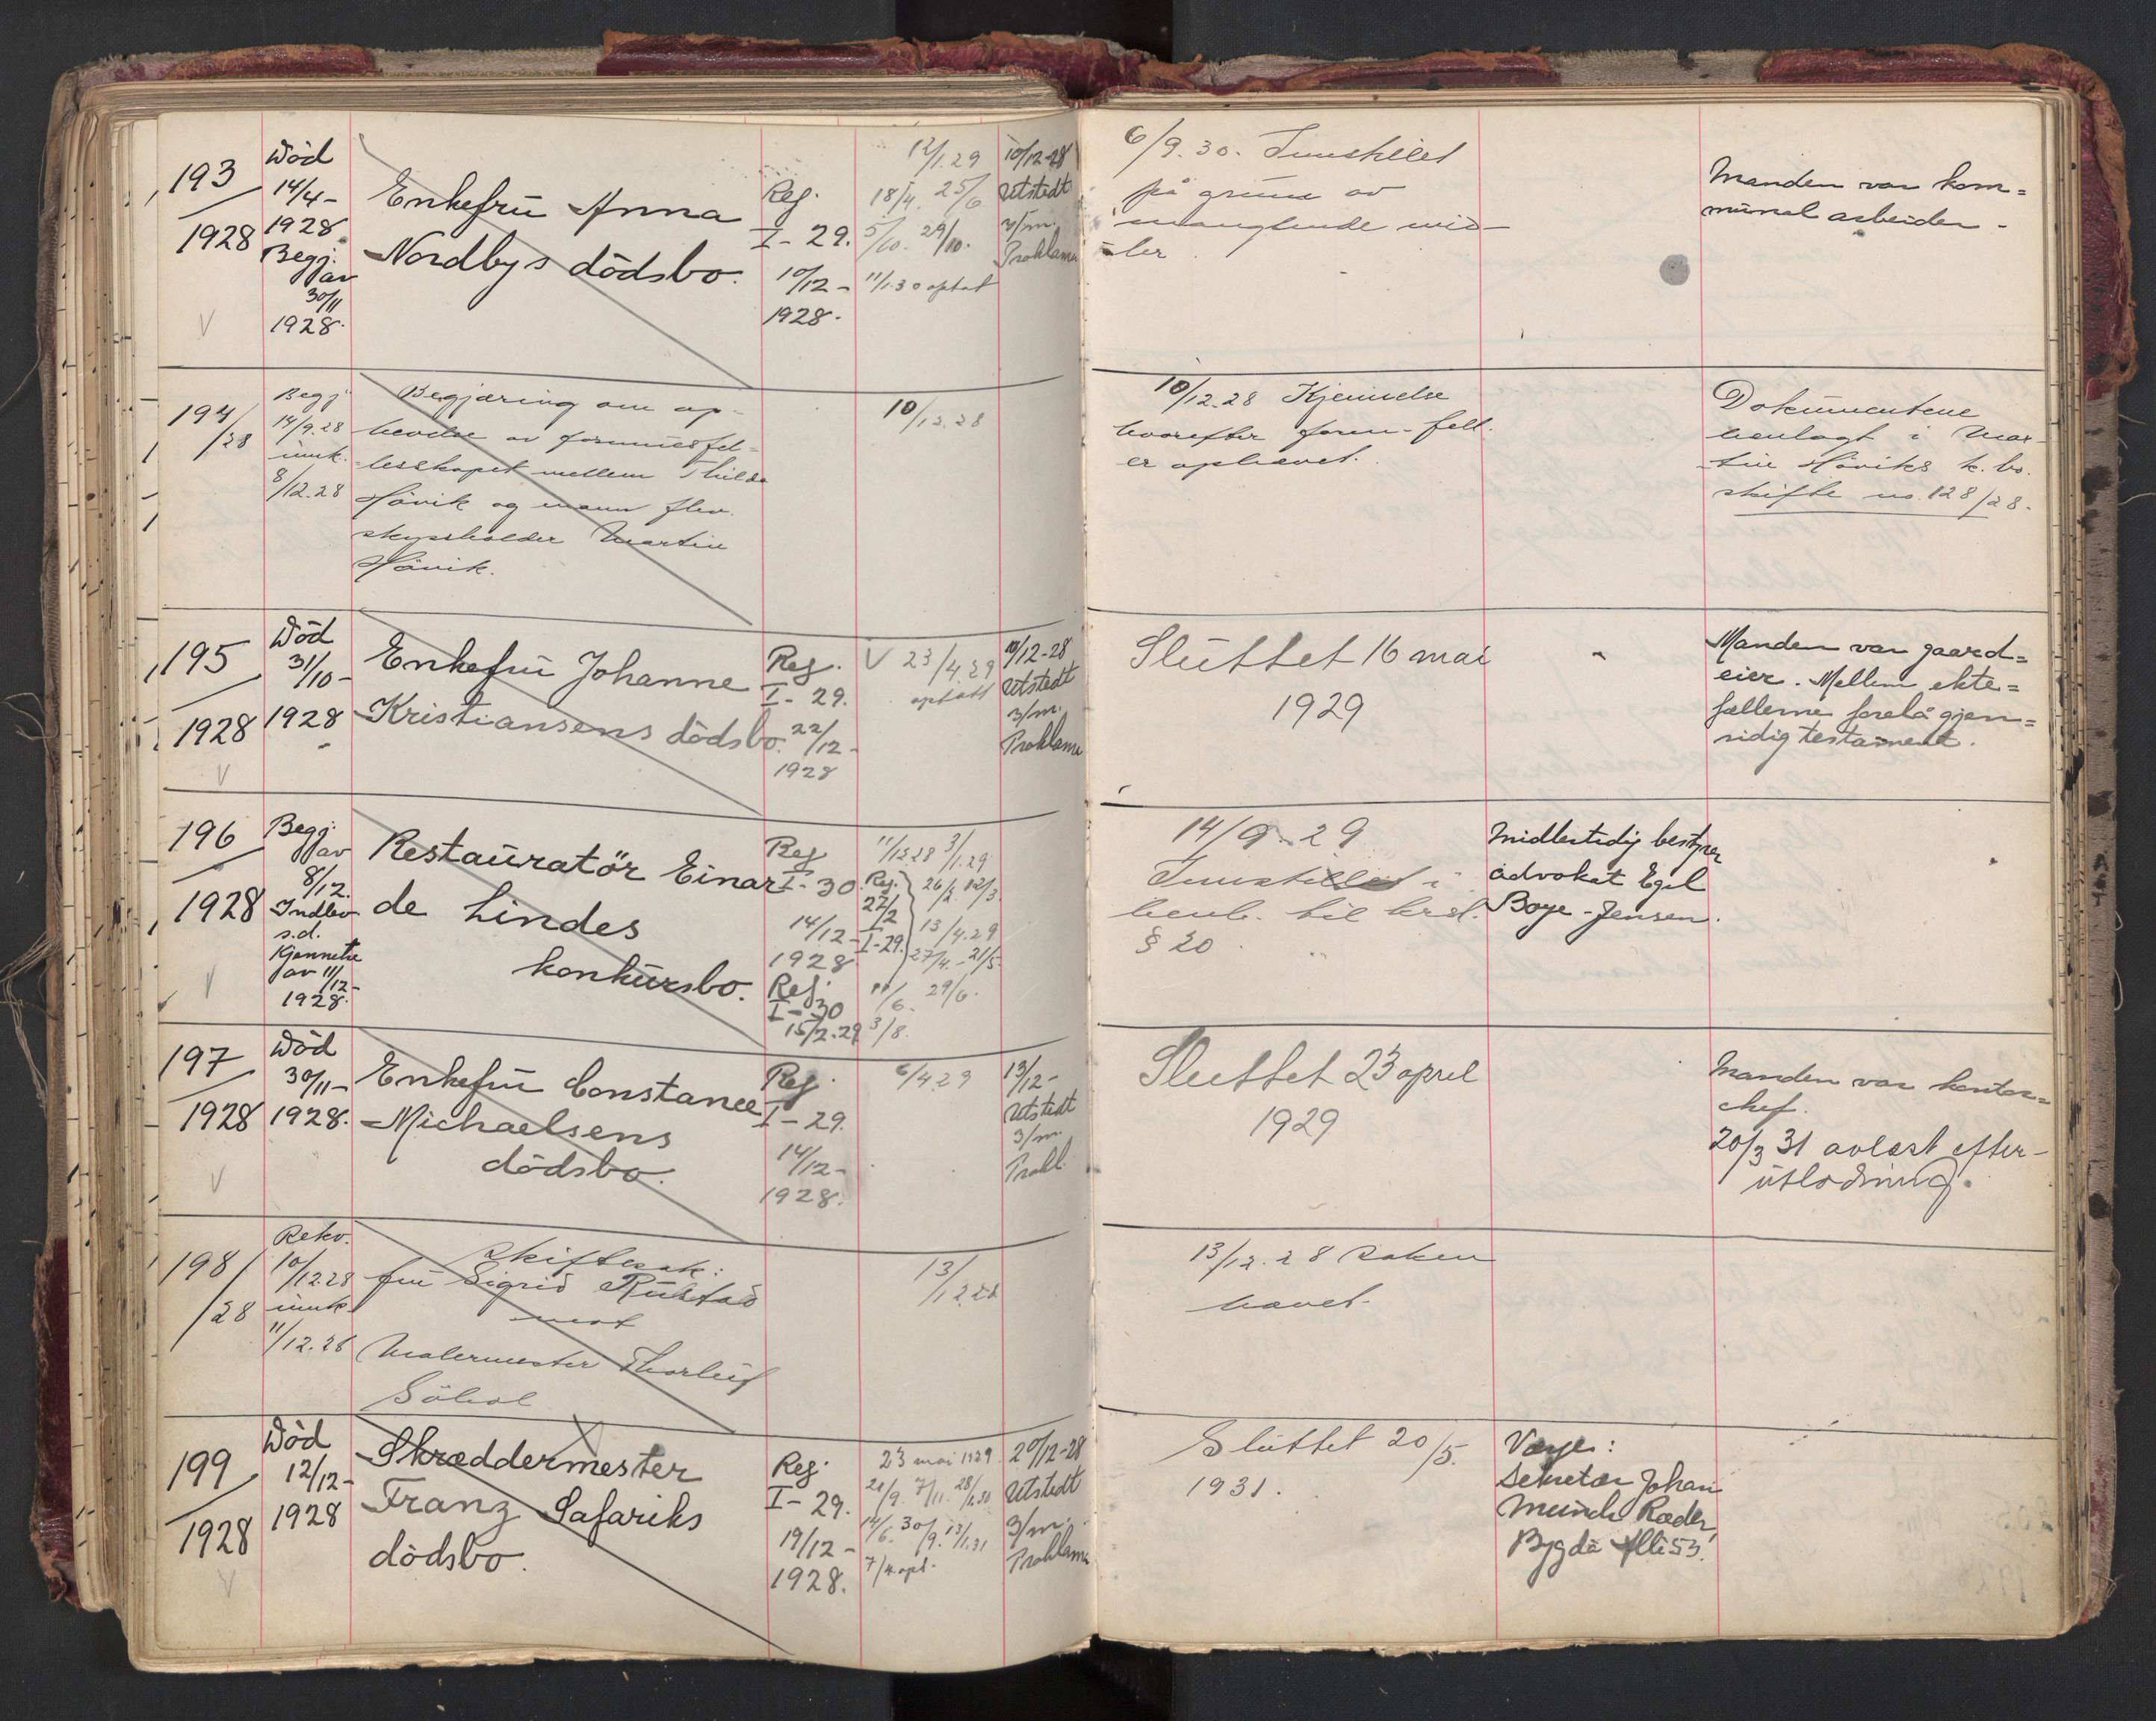 193
1928
Död
14/4-
1928
Begj.
av
30/11
1928.
Enkefru Anna
Nordbys dödsbo.
Reg.
I - 29.
10/12 -
1928.
12/1.29
18/4. 25/6
5/10. 29/10.
11/1.30 optat
10/12-28
Utstedt
3/m.
Proklama
6/9.30. Innstillet
på grunn av
manglende mid-
ler
Manden var kom=
munal arbeider.
194
/28
Begj
14/9.28
innk.
8/12.28
Begjæring om op-
hevelse av formuesfel-
lesskapet mellem Thilda
Hövik og mann
skyssholder Martin
Hövik.
10/12.28
10/12.28 Kjennelse
hvorefter form. fell.
er ophævet.
Dokumentene
henlagt i Mar-
tin Höviks k. bo.
skifte no. 128/28.
195
1928
Död
31/10-
1928
Enkefru Johanne
Kristiansens dödsbo.
Reg.
I - 29.
22/12-
1928
V 23/4.29
optatt
11/12-28
Utstedt
3/m.
Proklama
Sluttet 16 mai
1929
Manden var gaard=
eier. Mellem ekte=
fællerne forelå gjen=
sidig testament.
196
1928
Begj.
av
8/12.
Indlev.
s.d.
Kjennelse
av 11/12-
1928.
Restauratör Einar
de Lindes
konkursbo.
Reg
I - 30
14/12-
1928
Reg.
I - 30
15/2.29
11/12.28 3/1.29
Reg.
22/2
I-29.
26/2. 12/3.
13/4.29
27/4.-21/5
11/6. 29/6.
3/8.
14/9.29
Innstillet i
henh. til krsl.
§ 20
Midlertidig bestyrer
advokat Egil
Boye-Jensen.
197
1928
Död
30/11-
1928.
Enkefru Constance
Michaelsens
dödsbo.
Reg.
I - 29.
14/12-
1928.
6/4.29
13/12-
Utstedt
3/m.
Prokl.
Sluttet 23 april
1929
Manden var kontor=
chef.
20/3 31 avlæst efter-
utlodning.
198
/28
Rekv.
10/12.28
innk.
11/12.28
Skiftesak:
fru Sigrid Rustad
mot
Malermester Thorleif
13/12.28
13/12.28 saken
hævet.
199
1928
Död
12/12-
1928
Skræddermester
Franz Safariks
dödsbo.
Reg.
I - 29.
19/12-
1928.
23 mai 1929
21/9. 7/11. 28/1.30
14/6. 30/9. 13/1.31
7/4.opt.
20/12-28
Utstedt
3/m.
Proklama
Sluttet 20/5.
1931.
Værge:
Sekretær Johan
Munch Ræder,
Bygdö Allé 53.